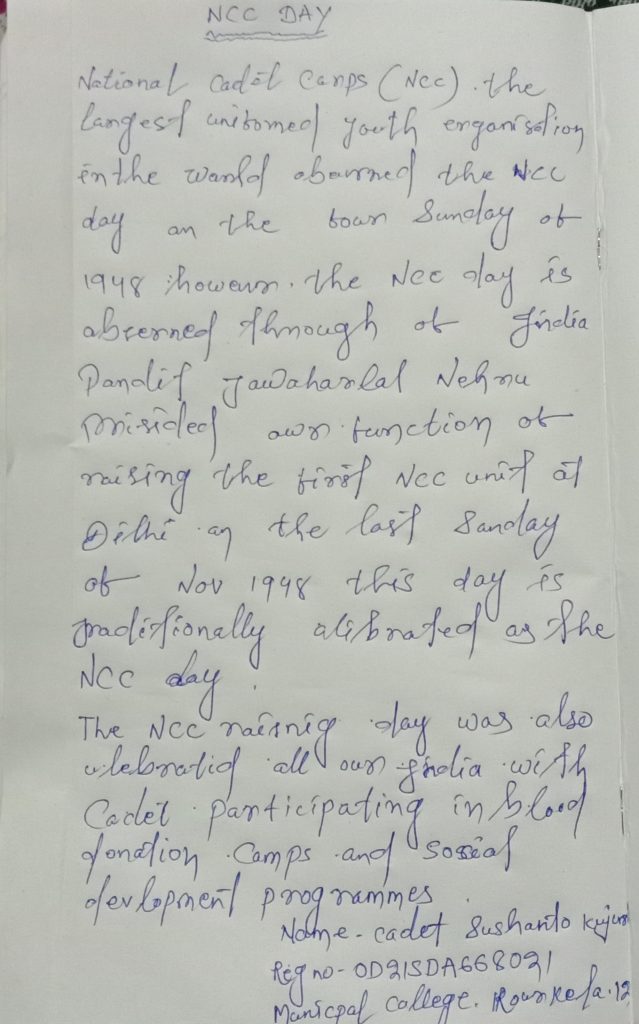 NCC DAY
National Cadet Camps (NCC). the
largest uniformed youth organisation
in the world observed the NCC
day on the four Sunday of
1948 however. the NCC day is
observed through of India
Pandit Jawaharlal Nehru
prisided over function of
raising the first NCC unit at
Delhi on the last Sunday
of Nov 1948 this day is
traditionally celibrated as the
NCC day.
The NCC raisnig day was also
celebratid all over India with
Cadet participating in blood
donation camps and social
devlopment programmes.
Name - cadet Sushanto Kujur
Reg no - OD21SDA668021
Municpal College. Rourkela.12